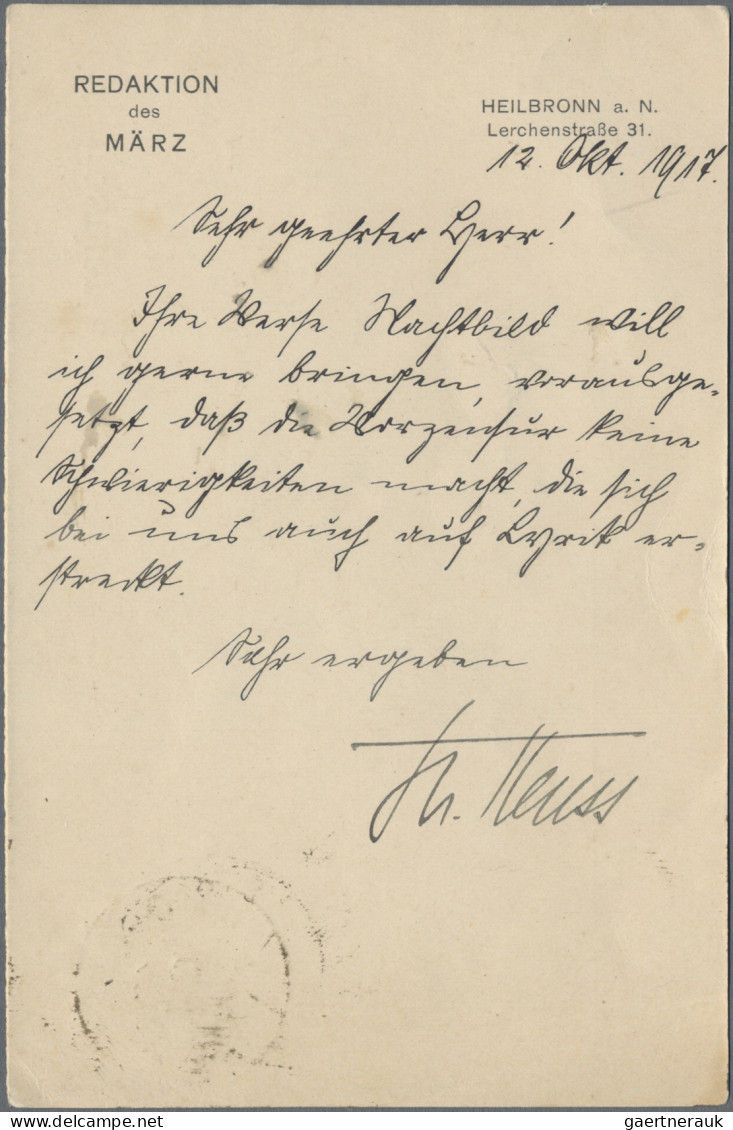 REDAKTION
des
MÄRZ
HEILBRONN a. N.
Lerchenstraße 31.
12. Okt. 1917.
Sehr geehrter Herr!
Ihre Verse Nachtbild will
ich gerne bringen, vorausge-
setzt, daß die Vorzensur keine
Schwierigkeiten macht, die sich
bei uns auch auf Lyrik er-
streckt.
Sehr ergeben
Th. Heuss
gaertnerauk